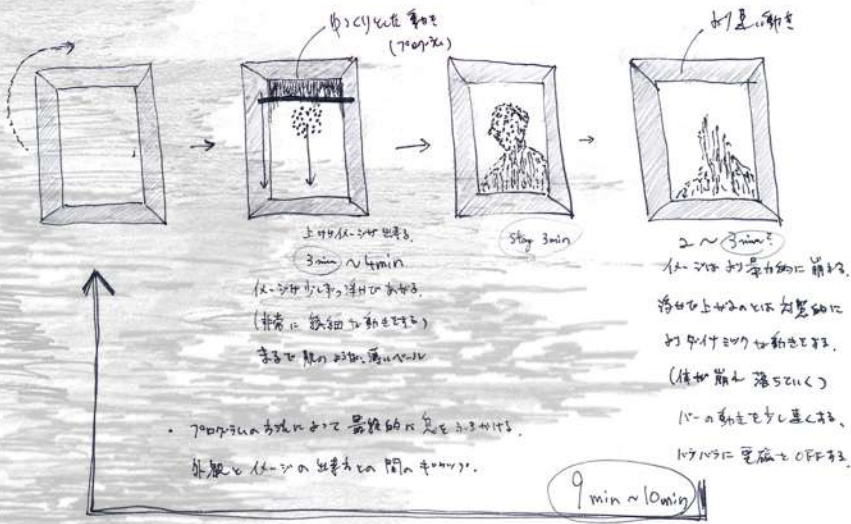 ゆっくりとした動き
(プログラム)
より早い動き
上からイメージが出来る.
3min ~ 4min
イメージが少しずつ浮かびあがる.
(非常に繊細な動きをする)
まるで肌のような、薄いベール
Stay 3min
2 ~ 3min?
イメージはより暴力的に崩れる.
浮かび上がるのとは対照的に
よりダイナミックな動きをする.
(体が崩れ落ちていく)
バーの動きを少し速くする、
バラバラに電磁をOFFする.
・プログラムの方法によって最終的に息をふきかける.
外観とイメージの出来方との間のギャップ.
9min ~ 10min